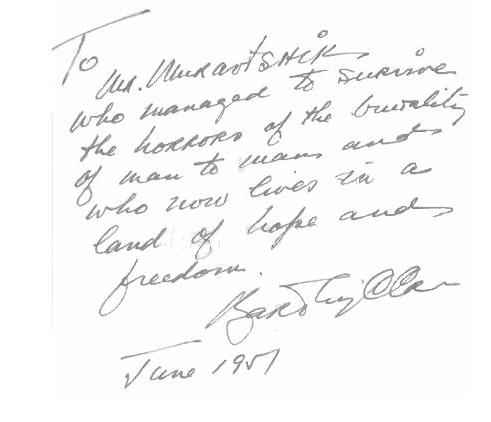 To
Mr. Muravtshik
who managed to survive
the horrors of the brutality
of man to man and
who now lives in a
land of hope and
freedom.
June 1951